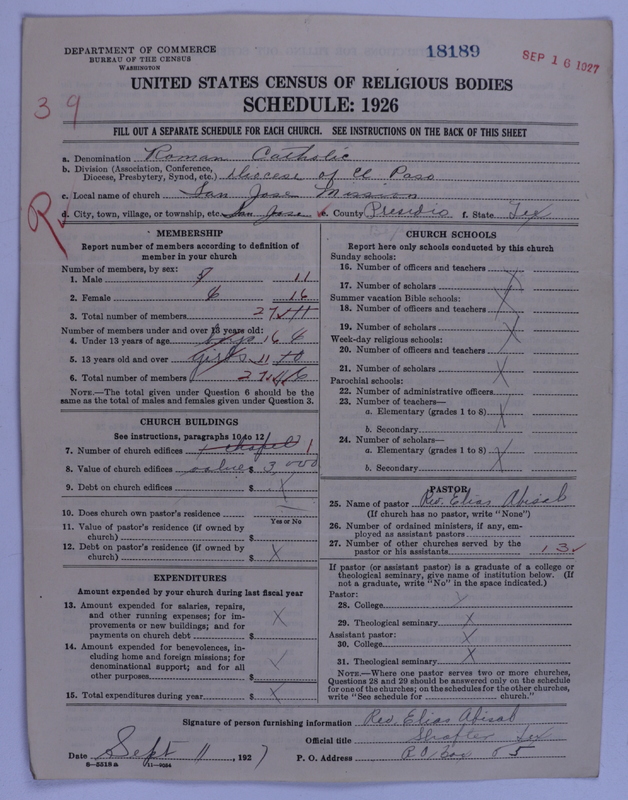 DEPARTMENT OF COMMERCE
BUREAU OF THE CENSUS
WASHINGTON
18189
SEP 16 1927
39
UNITED STATES CENSUS OF RELIGIOUS BODIES
SCHEDULE: 1926
FILL OUT A SEPARATE SCHEDULE FOR EACH CHURCH. SEE INSTRUCTIONS ON THE BACK OF THIS SHEET
a. Denomination Roman Catholic
b. Division (Association, Conference, Diocese, Presbytery, Synod, etc.) Diocese of El Paso
c. Local name of church San Jose Mission
d. City, town, village, or township, etc. San Jose e. County Presidio f. State Tex
R
MEMBERSHIP
Report number of members according to definition of member in your church
Number of members, by sex:
1. Male 11
2. Female 6 16
3. Total number of members 27
Number of members under and over 13 years old:
4. Under 13 years of age boys 16
5. 13 years old and over girls 11
6. Total number of members 27
NOTE.—The total given under Question 6 should be the same as the total of males and females given under Question 3.
CHURCH BUILDINGS
See instructions, paragraphs 10 to 12
7. Number of church edifices 1 chapel 1
8. Value of church edifices value $ 3,000
9. Debt on church edifices $ X
10. Does church own pastor's residence
Yes or No
11. Value of pastor's residence (if owned by church) $
12. Debt on pastor's residence (if owned by church) $ X
EXPENDITURES
Amount expended by your church during last fiscal year
13. Amount expended for salaries, repairs, and other running expenses; for improvements or new buildings; and for payments on church debt $ X
14. Amount expended for benevolences, including home and foreign missions; for denominational support; and for all other purposes $
15. Total expenditures during year $ X
CHURCH SCHOOLS
Report here only schools conducted by this church
Sunday schools:
16. Number of officers and teachers
17. Number of scholars X
Summer vacation Bible schools:
18. Number of officers and teachers
19. Number of scholars X
Week-day religious schools:
20. Number of officers and teachers
21. Number of scholars X
Parochial schools:
22. Number of administrative officers
23. Number of teachers—
a. Elementary (grades 1 to 8) X
b. Secondary
24. Number of scholars—
a. Elementary (grades 1 to 8) X
b. Secondary
PASTOR
25. Name of pastor Rev. Elias Abisal
(If church has no pastor, write "None")
26. Number of ordained ministers, if any, employed as assistant pastors
27. Number of other churches served by the pastor or his assistants 13
If pastor (or assistant pastor) is a graduate of a college or theological seminary, give name of institution below. (If not a graduate, write "No" in the space indicated.)
Pastor:
28. College
29. Theological seminary X
Assistant pastor:
30. College X
31. Theological seminary X
NOTE.—Where one pastor serves two or more churches, Questions 28 and 29 should be answered only on the schedule for one of the churches; on the schedules for the other churches, write "See schedule for church."
Signature of person furnishing information Rev. Elias Abisal
Official title Shafter Tex
Date Sept 11, 1927 P. O. Address P.O. Box 85
8-5518a 11-9064